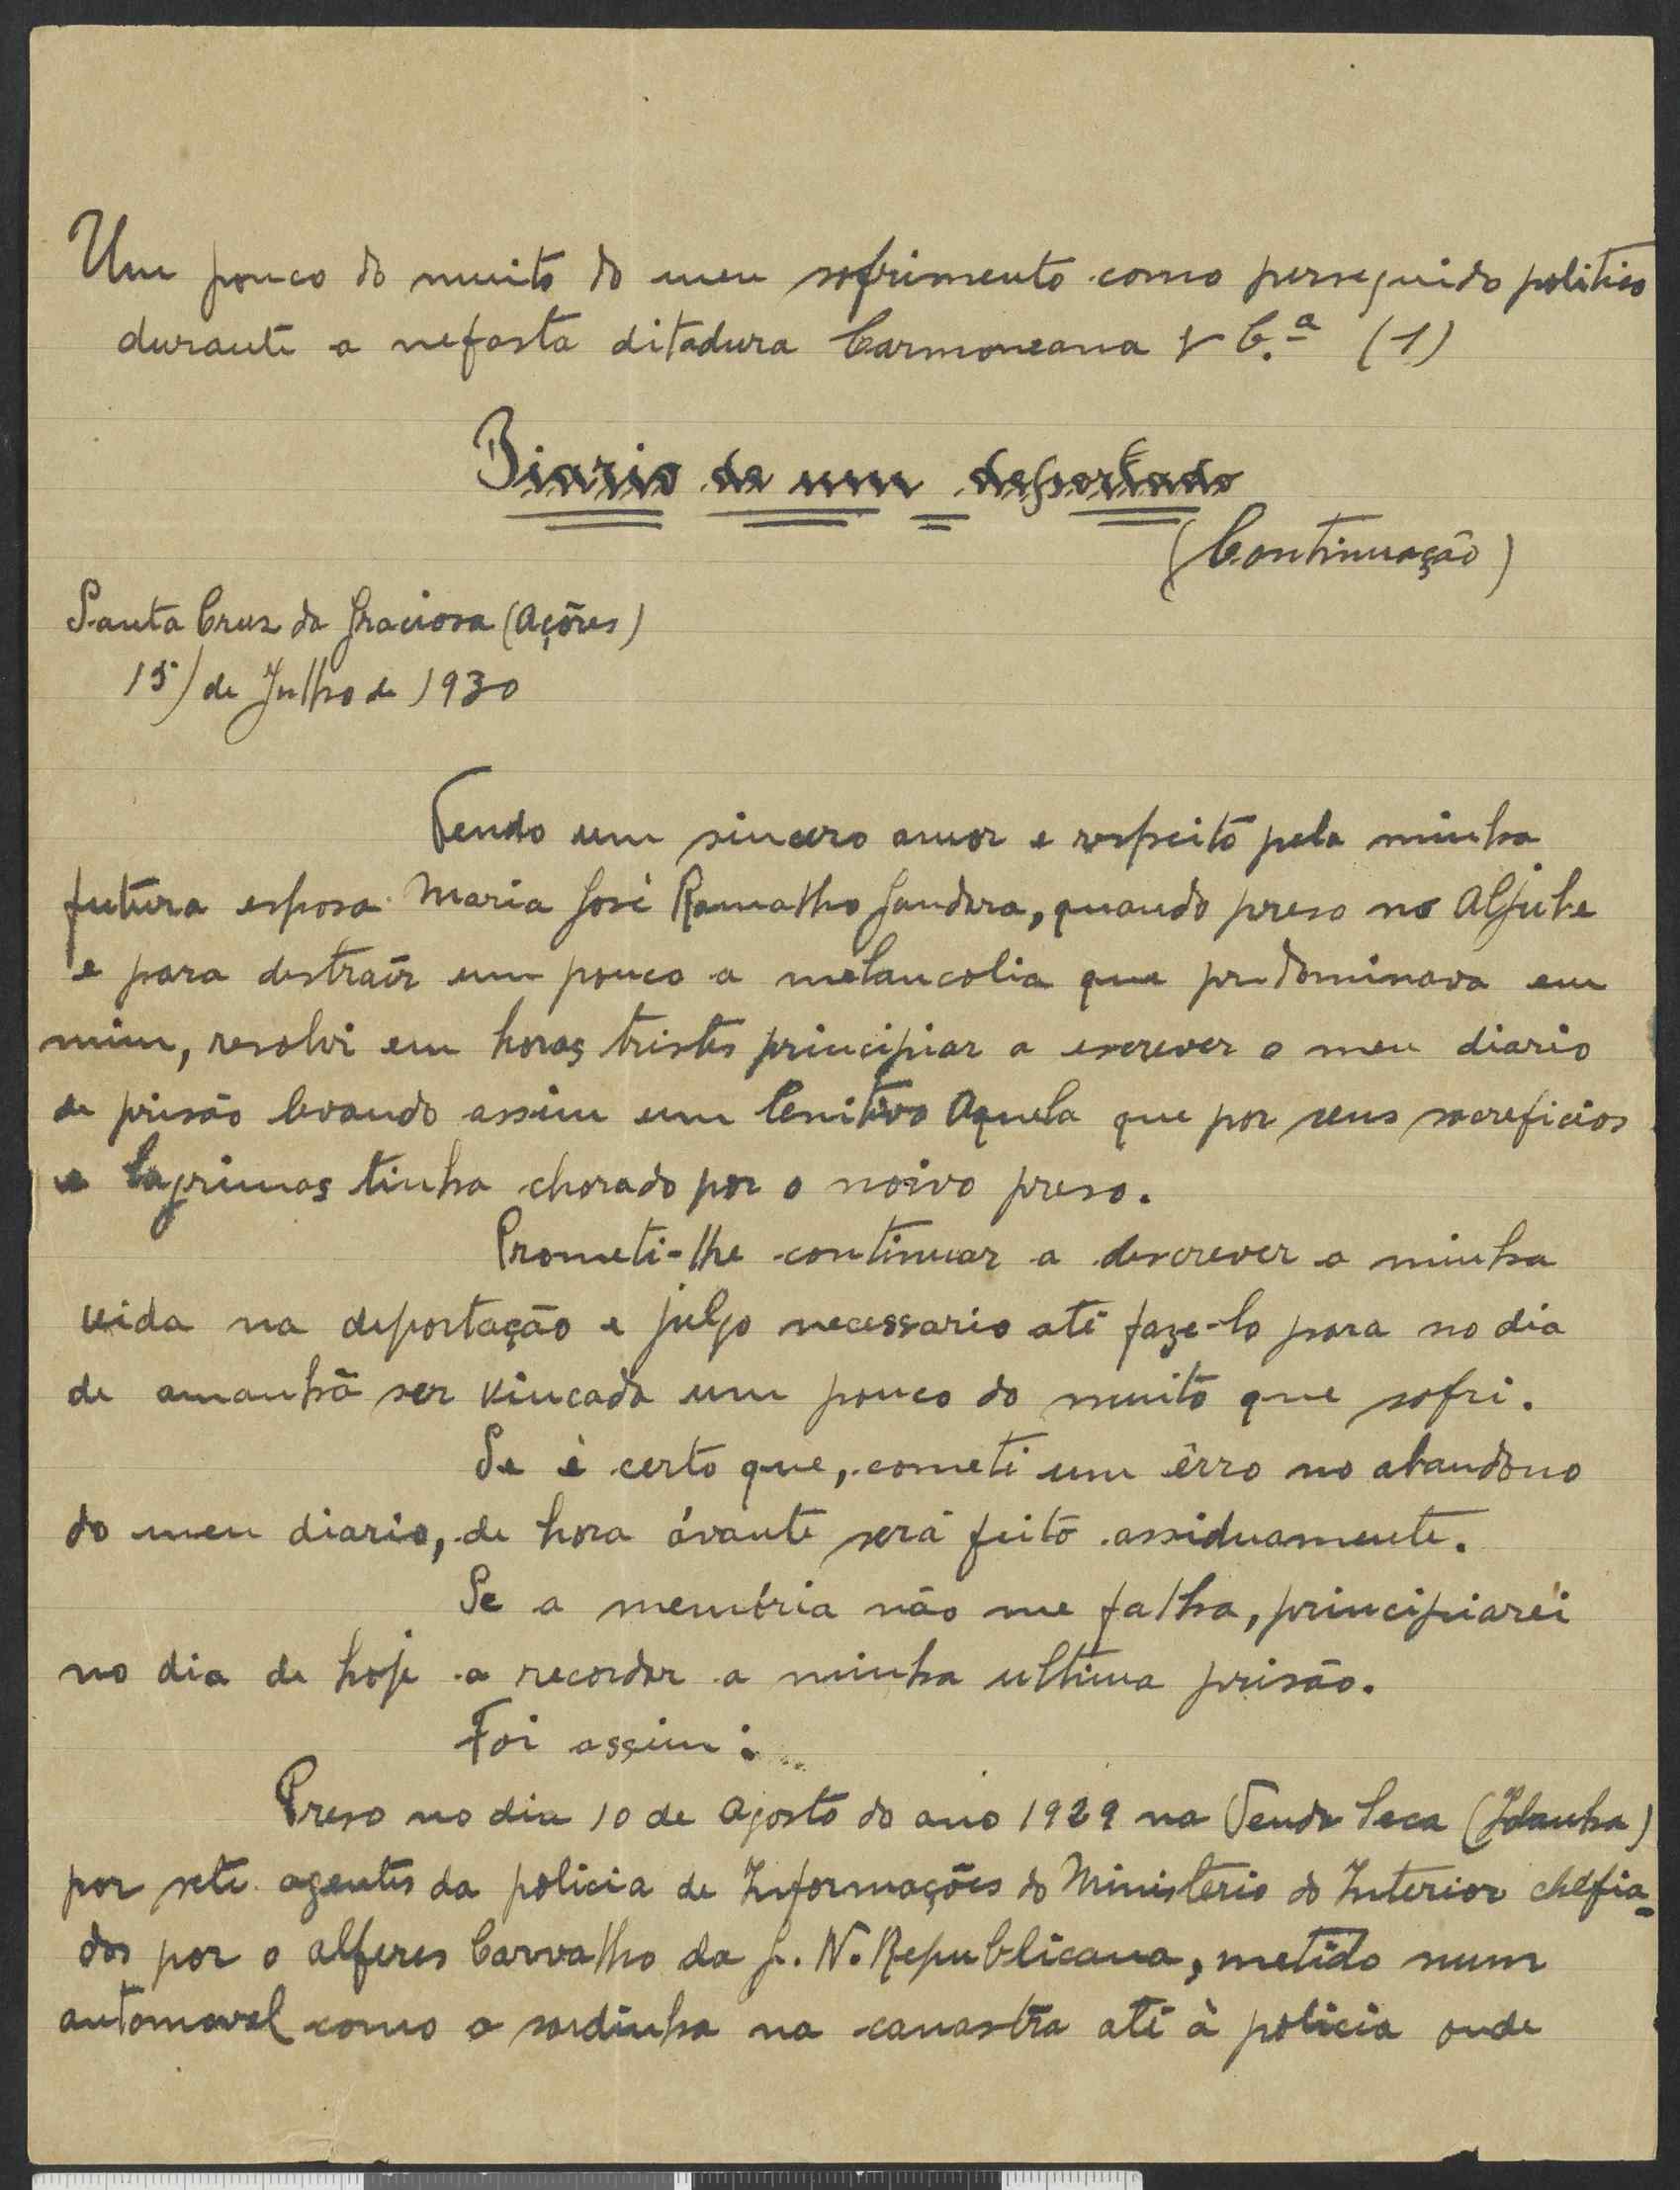 Um pouco do muito do meu sofrimento como perseguido politico
durante a nefasta ditadura Carmoneana & C.ª (1)
Diario de um deportado
(Continuação)
Santa Cruz da Graciosa (Açôres)
15/ de Julho de 1930
Tendo um sincero amor e respeito pela minha
futura esposa Maria José Ramalho Gandara, quando preso no Aljube
e para distraír um pouco a melancolia que predominava em
mim, resolvi em horas tristes principiar a escrever o meu diario
de prisão levando assim um lenitivo Aquela que por seus sacreficios
e lagrimas tinha chorado por o noivo preso.
Prometi-lhe continuar a descrever a minha
vida na deportação e julgo necessario até faze-lo para no dia
de amanhã ser vincada um pouco do muito que sofri.
Se é certo que, cometi um êrro no abandono
do meu diario, de hora ávante será feito assiduamente.
Se a memória não me falha, principiarei
no dia de hoje a recordar a minha ultima prisão.
Foi assim:
Preso no dia 10 de Agosto do ano 1929 na Venda Seca (Idanha)
por sete agentes da policia de Informações do Ministerio do Interior chefia-
dos por o alferes Carvalho da G. N. Republicana, metido num
automovel como a sardinha na canastra até à policia onde